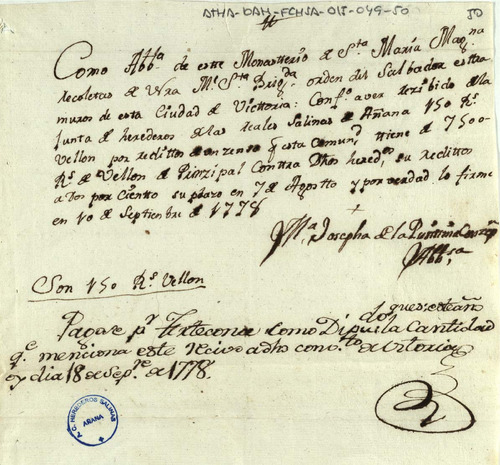 ATHA-DAH-FCHSA-015-049-50
50
Como Abb.a de este Monasterio de S.ta María Mag.na
recoletas de N̄ra M.e S.ta Brig.da orden del Salvador extra
muros de esta Ciudad de Victoria: Conf.o aver rezibido de la
Junta de herederos de las reales Salinas de Añana 150 R.s
Vellon por reclittos de un zenso q.e esta comun.d tiene de 7500
R.s de Vellon de Prinzipal contra dhos hered.s, su reclitos
a Dos por ciento su plazo en 7 de Agosto y por verdad lo firme
en 10 de Septiembre de 1778
M.a Josepha de la Puríssima Conzep.n
Abb.sa
Son 150 R.s Vellon
Pagare p.r Artecona como Diputado la Cantidad
q.e menciona este Recivo a dho conv.to de Vitoria
oy dia 18 de Sep.re de 1778.
C. HEREDEROS SALINAS
AÑANA